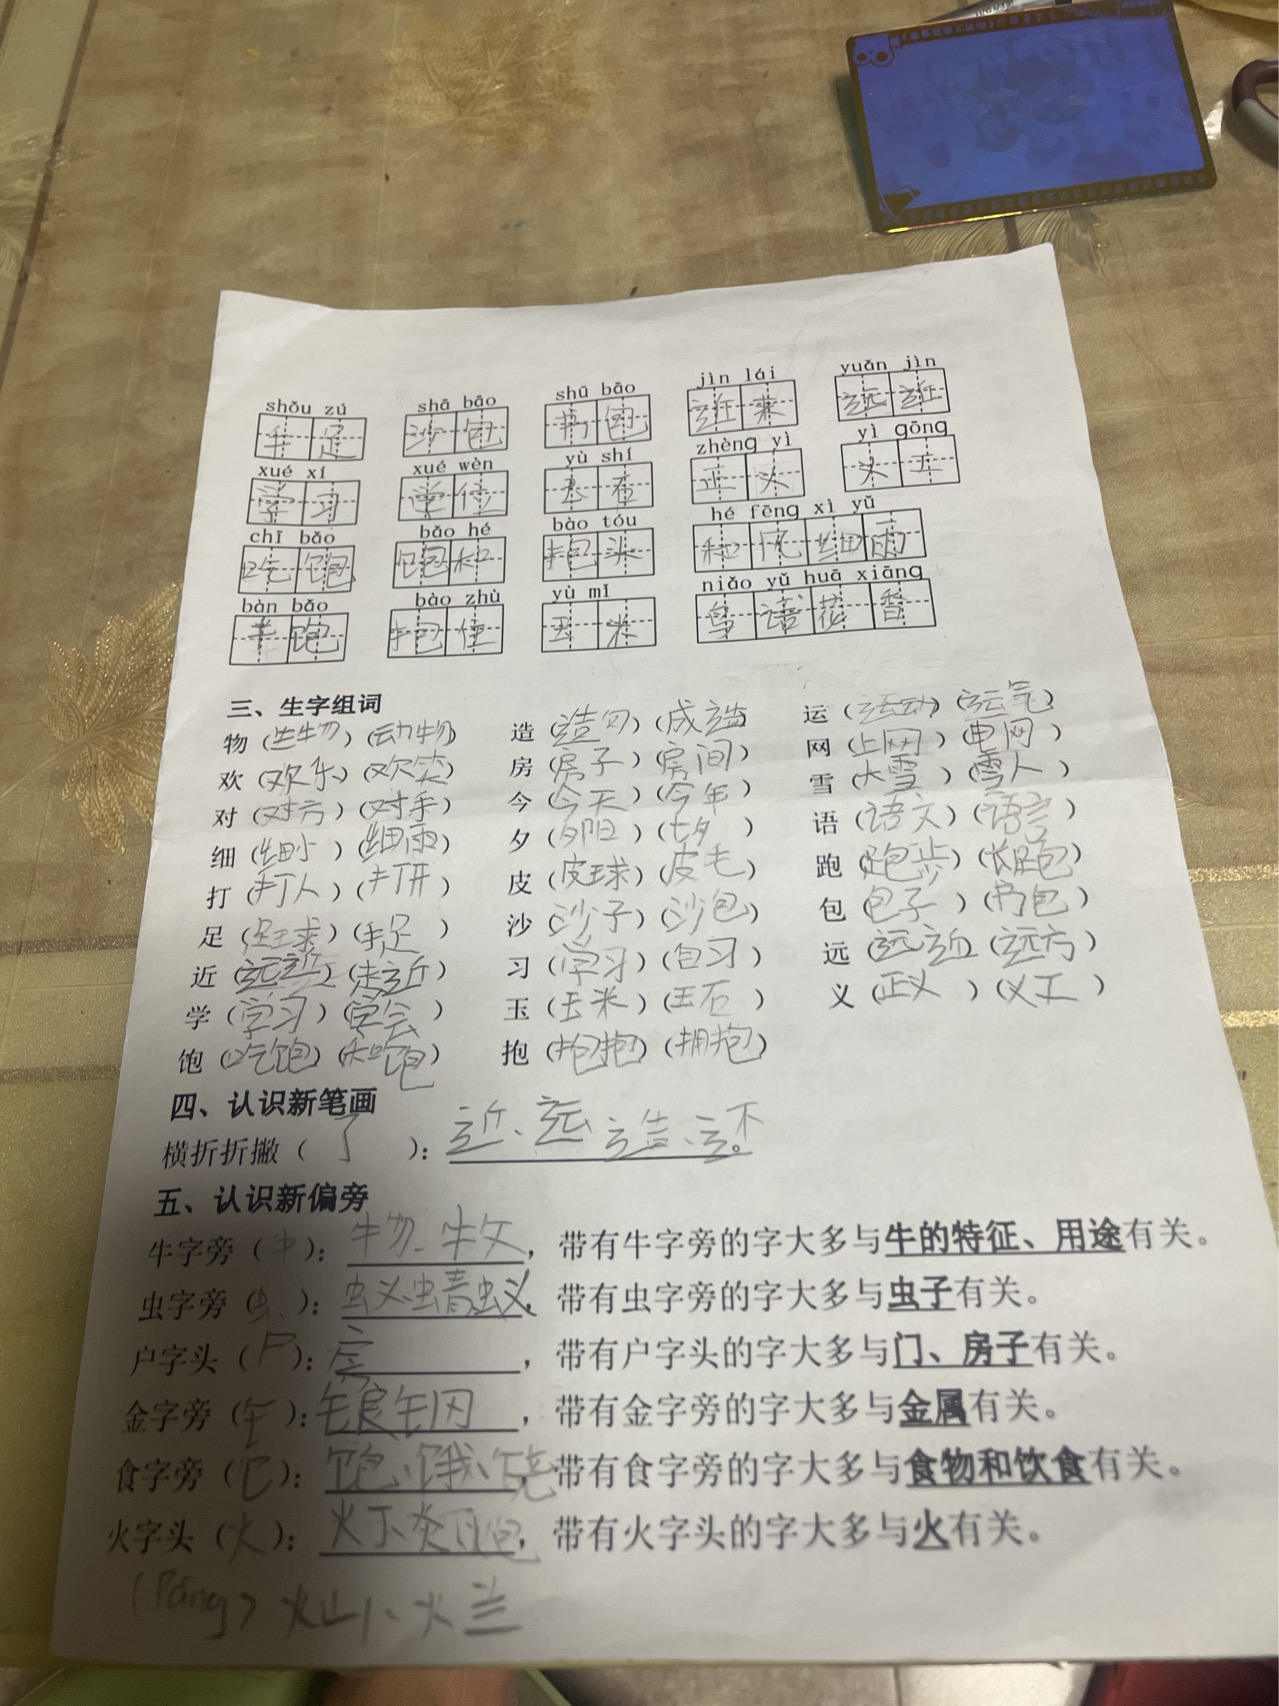 shǒu zú shā bāo shū bāo jìn lái yuǎn jìn
手 足 沙 包 书 包 近 来 远 近
xué xí xué wèn yù shí zhèng yì yì gōng
学 习 学 正 义 工
chī bǎo bǎo hé bào tóu hé fēng xì yǔ
吃 饱 饱 和 抱 头 和 风 细 雨
bàn bǎo bào zhù yù mǐ niǎo yǔ huā xiāng
饱 抱 住 玉 米 鸟 语 花 香
三、生字组词
物（生物）（动物） 造（造句）（成造） 运（运动）（运气）
欢（欢乐）（欢笑） 房（房子）（房间） 网（上网）（电网）
对（对方）（对手） 今（今天）（今年） 雪（大雪）（雪人）
细（细小）（细雨） 夕（夕阳）（七夕） 语（语文）（语言）
打（打人）（打开） 皮（皮球）（皮毛） 跑（跑步）（长跑）
足（足球）（手足） 沙（沙子）（沙包） 包（包子）（书包）
近（远近）（走近） 习（学习）（自习） 远（远近）（远方）
学（学习）（学会） 玉（玉米）（玉石） 义（正义）（义工）
饱（吃饱）（大吃饱） 抱（抱抱）（拥抱）
四、认识新笔画
横折折撇（ ）：近、运、造、还
五、认识新偏旁
牛字旁（牜）：物、牧，带有牛字旁的字大多与牛的特征、用途有关。
虫字旁（虫）：蚁、蜻、蚁，带有虫字旁的字大多与虫子有关。
户字头（户）：房，带有户字头的字大多与门、房子有关。
金字旁（钅）：银钢，带有金字旁的字大多与金属有关。
食字旁（饣）：饱、饿、饶，带有食字旁的字大多与食物和饮食有关。
火字头（火）：灯、炎、炮，带有火字头的字大多与火有关。
（Páng）灿、烂